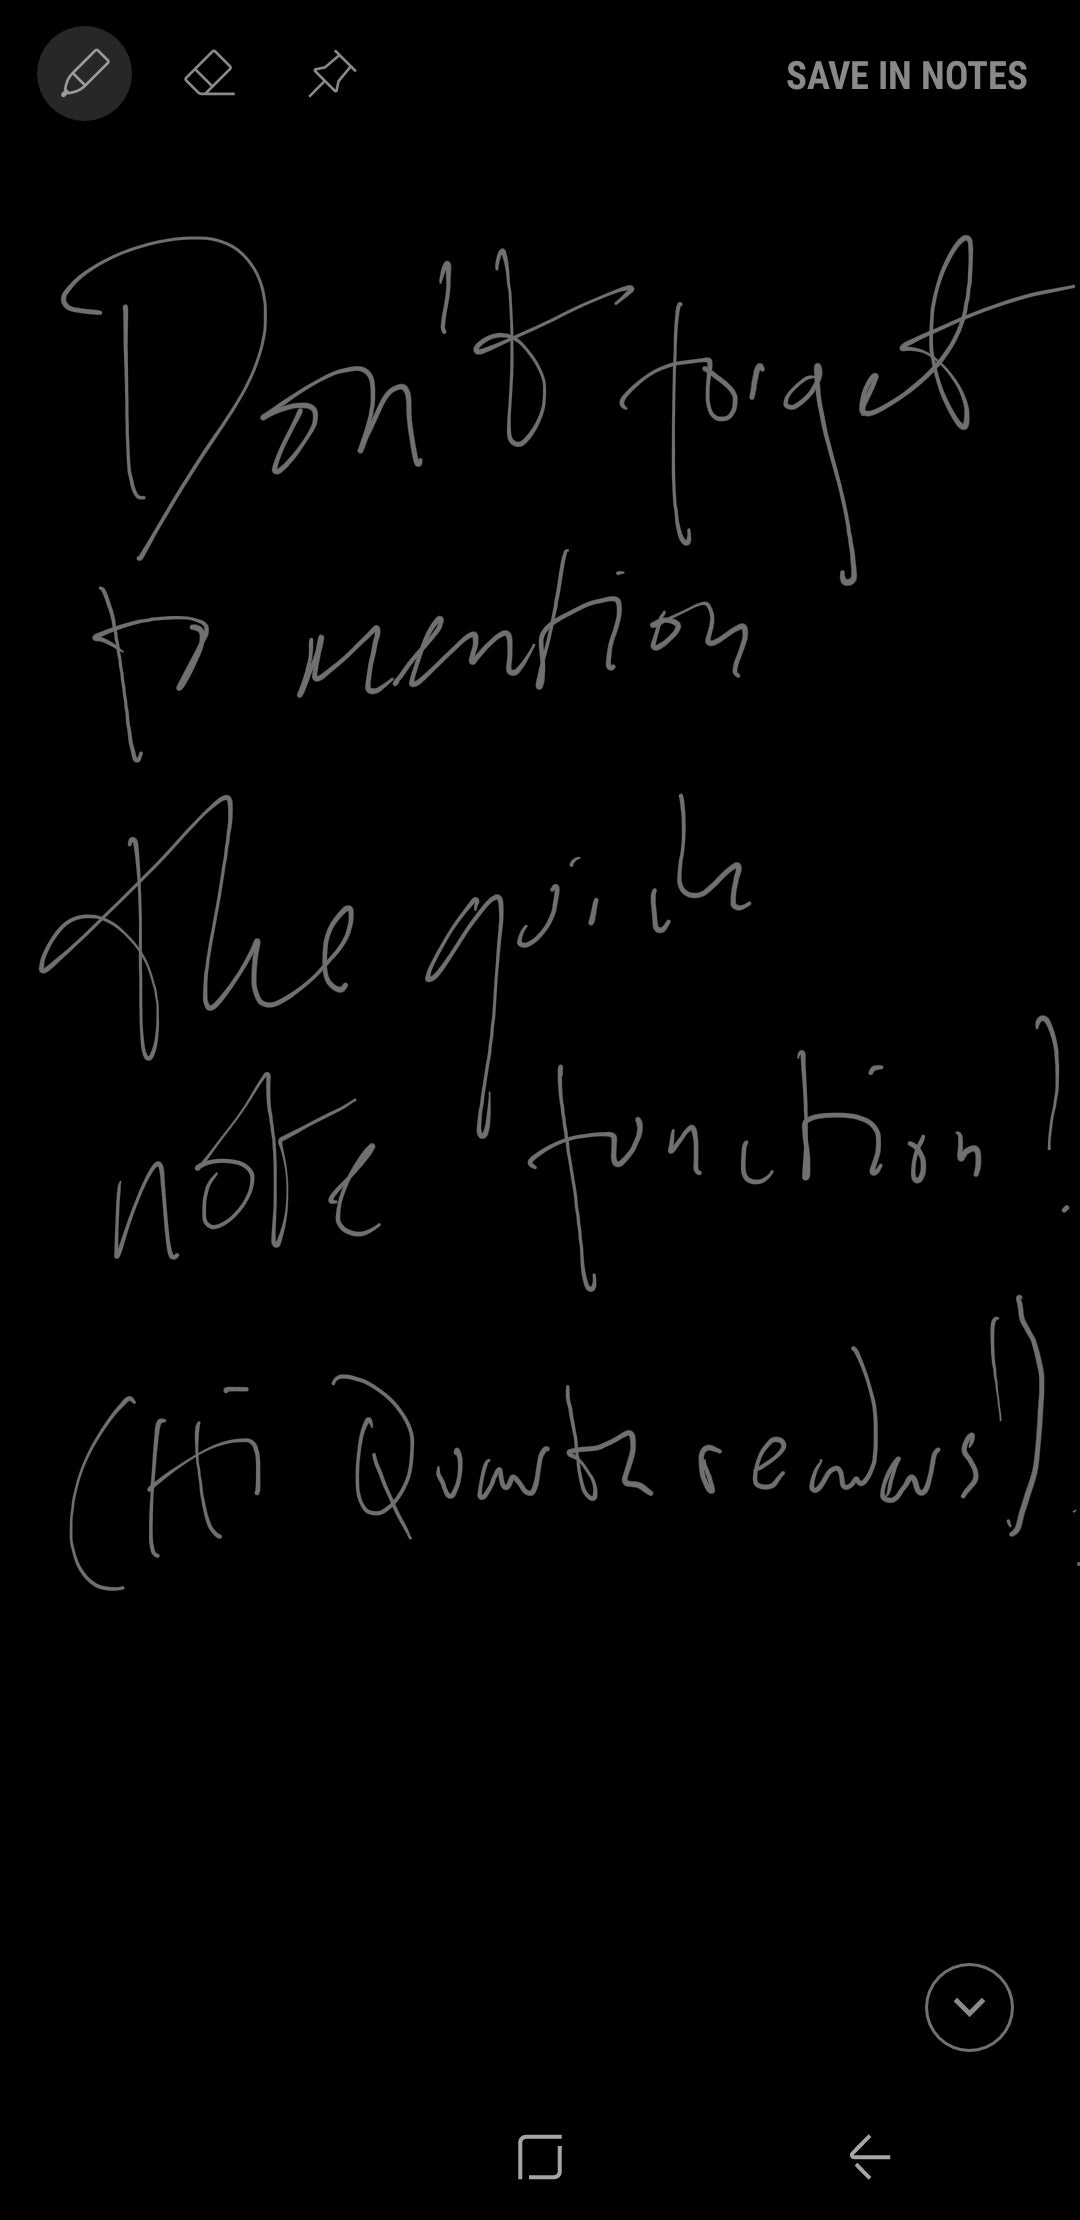 SAVE IN NOTES
Don't forget
to mention
the quick
note function!
(Hi Quartz readers!)